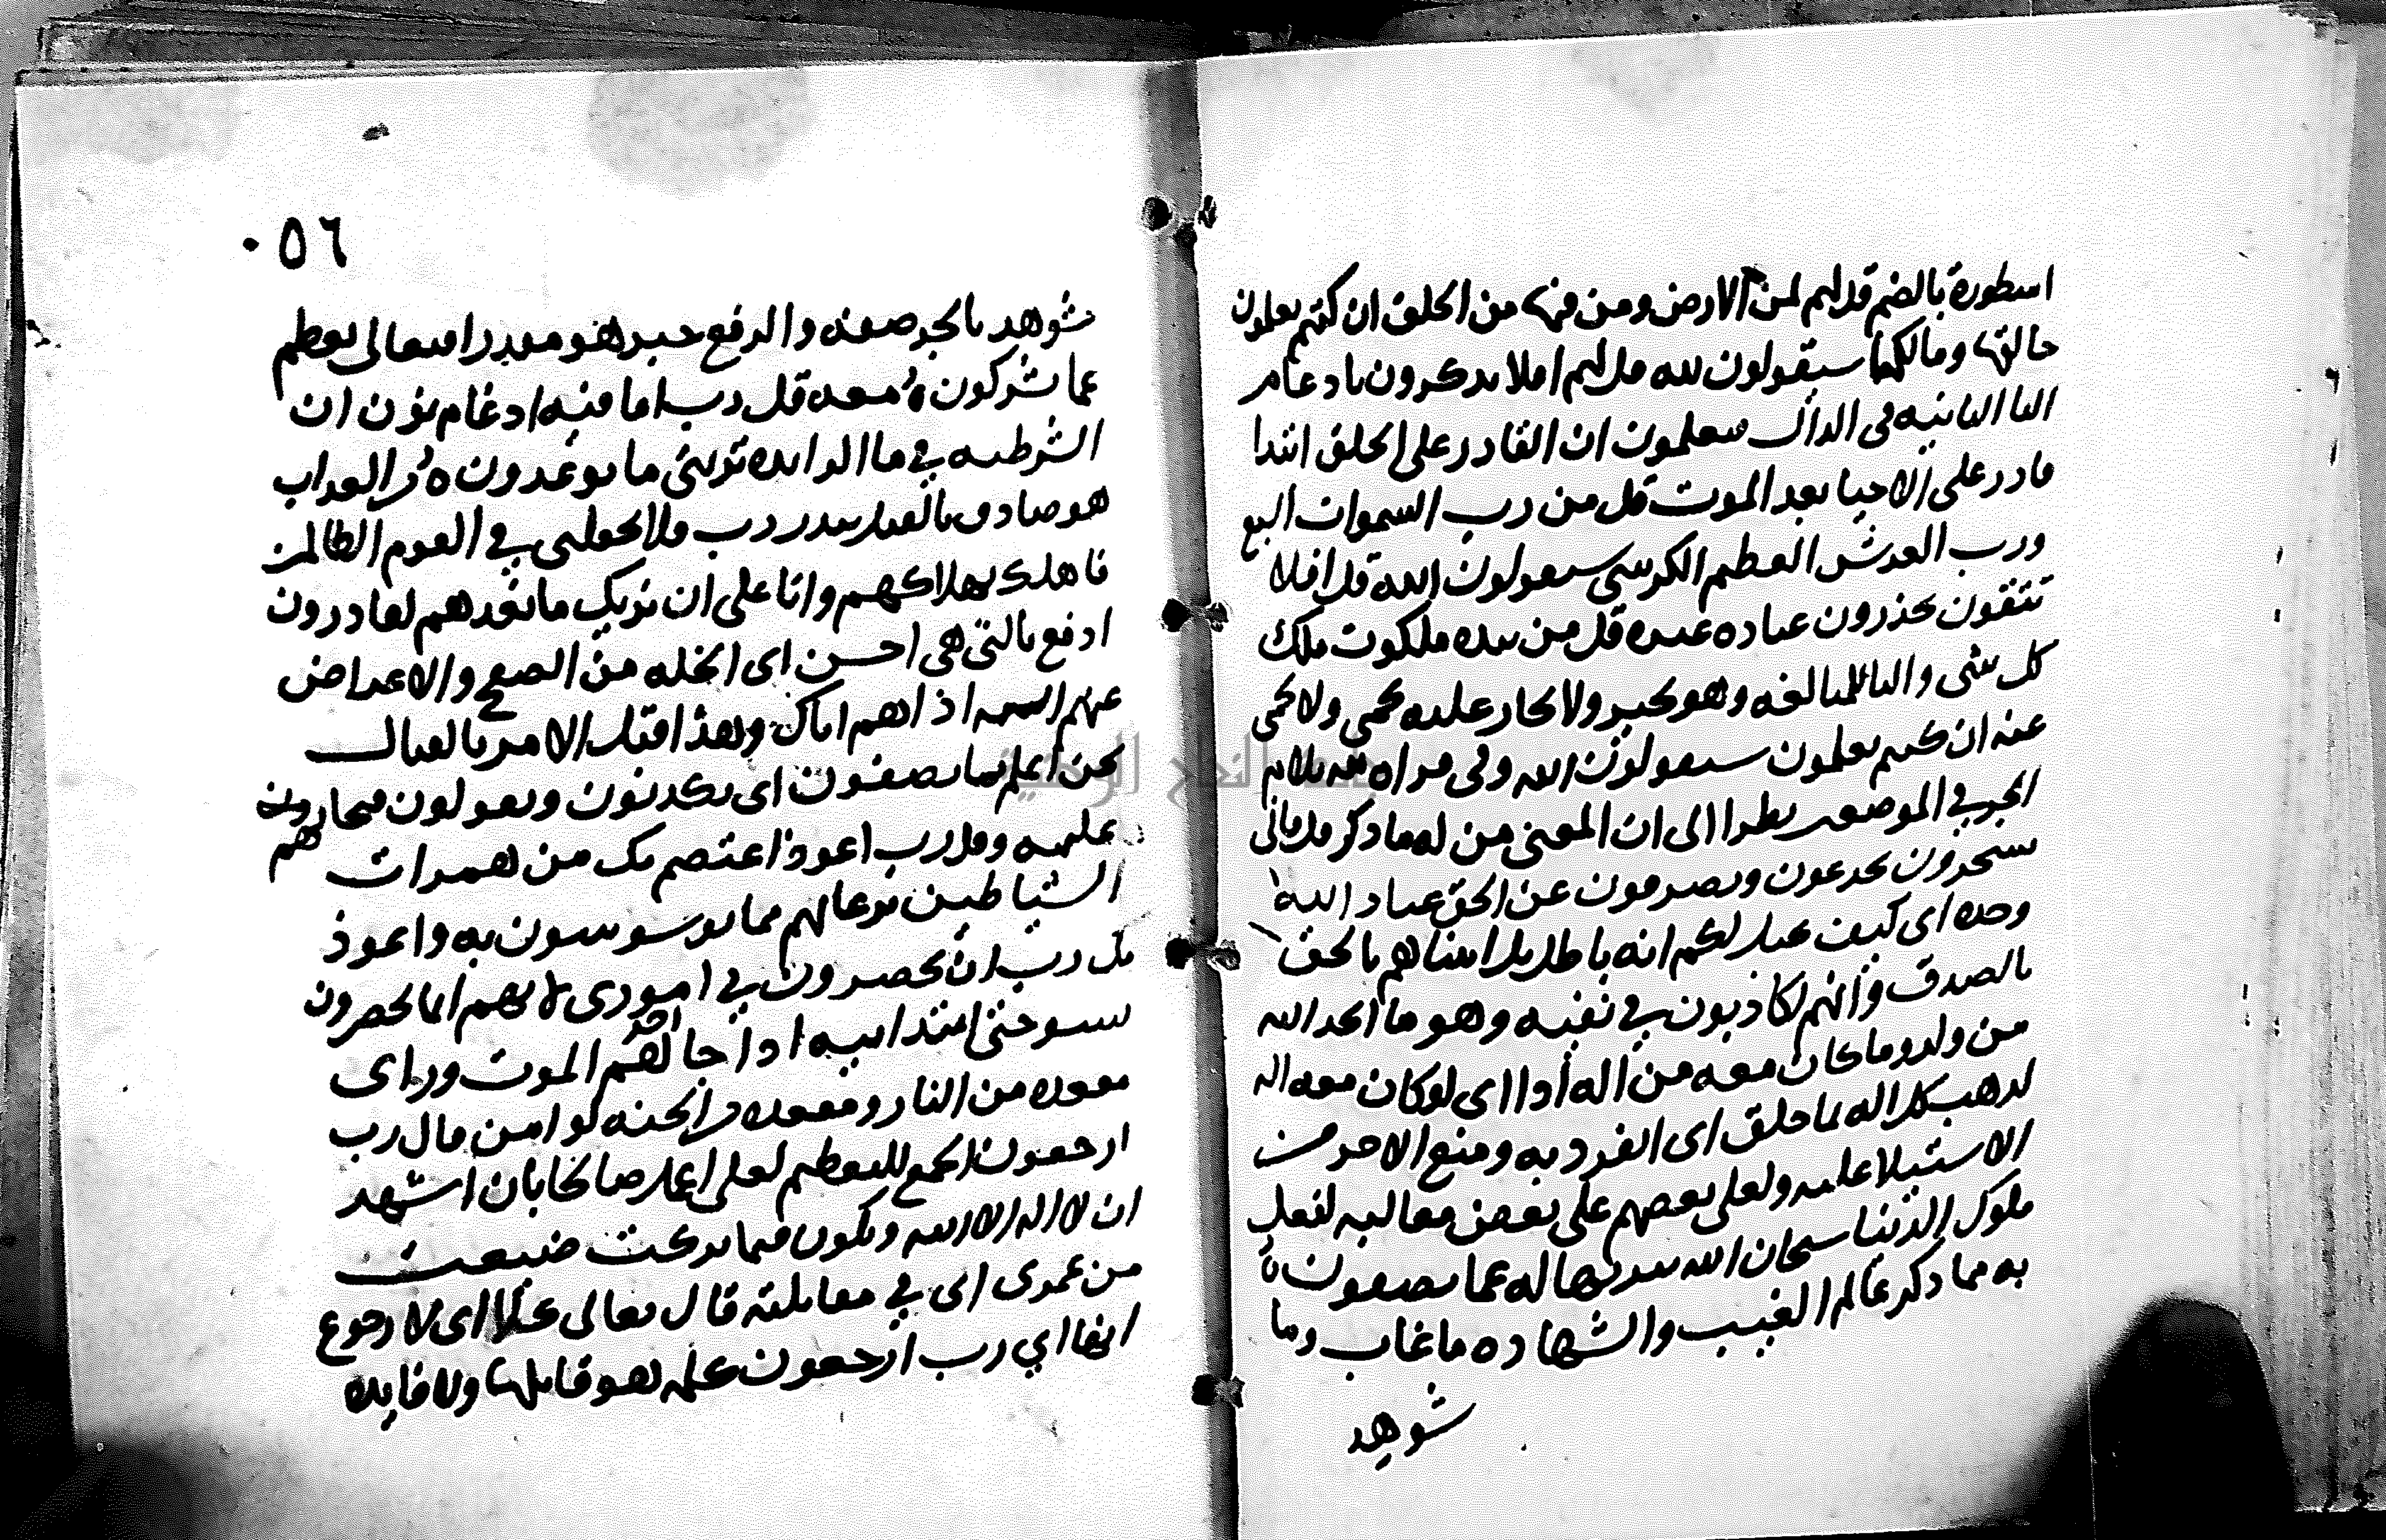 اسطورة بالضم قل لهم لمن الارض ومن فيها من الخلق ان كنتم تعلمون
خالقها ومالكها سيقولون لله قل لهم افلا تذكرون بادغام
التا الثانية في الذال تتعلمون ان القادر على الخلق ابتدا
قادر على الاحيا بعد الموت قل من رب السموات السبع
ورب العرش العظيم الكرسي سيقولون الله قل افلا
تتقون تحذرون عبادة غيره قل من بيده ملكوت ملك
كل شي والتا للمبالغه وهو يجير ولا يجار عليه يحمي ولا يحمى
عنه ان كنتم تعلمون سيقولون الله وفي قراه لله بلام
الجر في الموضعين نظرا الى ان المعنى من له ما ذكر قل فاني
تسحرون تخدعون وتصرفون عن الحق عبادة الله
وحده اي كيف تخيل لكم انه باطل بل اتيناهم بالحق
بالصدق وانهم لكاذبون في نفيه وهو ما اتخذ الله
من ولد وما كان معه من اله اذا اي لو كان معه اله
لذهب كل اله بما خلق اي انفرد به ومنع الاخر من
الاستيلا عليه ولعلى بعضهم على بعض مغالبه لفعل
ملوك الدنيا سبحان الله تنزيها له عما يصفون ه
به مما ذكر عالم الغيب والشهاده ما غاب وما
شوهد
٠٥٦
شوهد بالجر صفه والرفع خبر هو مقدرا فتعالى تعظم
عما يشركون ه معه قل رب اما فيه ادغام نون ان
الشرطيه في ما الزايده تريني ما يوعدون ه من العذاب
هو صادق بالقتل ببدر رب فلا تجعلني في القوم الظالمين
فاهلك بهلاكهم وانا على ان نريك ما نعدهم لقادرون
ادفع بالتي هي احسن اي الخله من الصفح والاعراض
عنهم السييه اذاهم اياك وهذا قبل الامر بالقتال
نحن اعلم بما يصفون اي يكذبون ويقولون فيجازون
هم
عليه وقل رب اعوذ اعتصم بك من همزات
الشياطين نزغاتهم مما يوسوسون به واعوذ
بك رب ان يحضرون في اموري لانهم انما يحضرون
بسو حتى ابتدائيه اذا جا احدهم الموت وراى
مقعده من النار ومقعده من الجنه لو امن قال رب
ارجعون الجمع للتعظيم لعلي اعمل صالحا بان اشهد
ان لا اله الا الله ويكون فيما تركت ضيعت
من عمري اي في مقابلته قال تعالى كلا اي لا رجوع
انها اي رب ارجعون كلمه هو قايلها ولا فايده
جامعة النجاح الوطنية